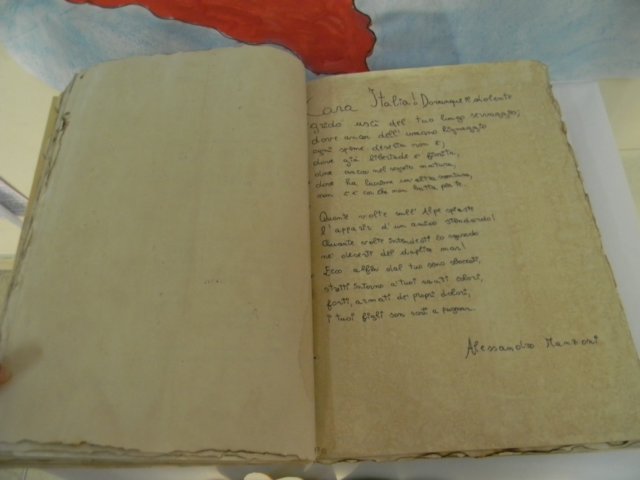 Cara Italia! Dovunque il dolente
grido uscì del tuo lungo servaggio;
dove ancor dell' umano lignaggio
ogni speme deserta non è;
dove già libertade è fiorita,
dove ancor nel segreto matura,
dove ha lacrime un'altra sventura,
non c'è cor che non batta per te.
Quante volte sull' Alpe spiasti
l'apparir d'un amico stendardo!
Quante volte intendesti lo sguardo
ne' deserti del duplice mar!
Ecco alfin dal tuo seno sboccati,
stretti intorno a' tuoi santi colori,
forti, armati de' propri dolori,
i tuoi figli son sorti a pugnar.
Alessandro Manzoni